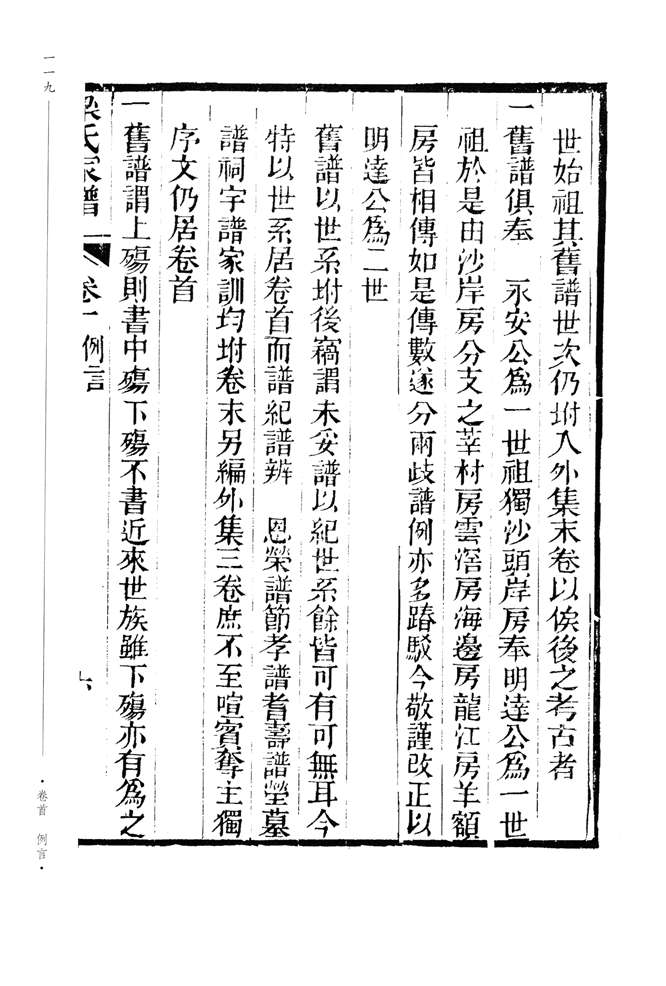 世始祖其舊譜世次仍坿入外集末卷以俟後之考古者
一舊譜俱奉　永安公爲一世祖獨沙頭岸房奉明達公爲一世
祖於是由沙岸房分支之莘村房雲滘房海邊房龍江房羊額
房皆相傳如是傳數遂分兩歧譜例亦多踳駁今敬謹改正以
明達公爲二世
舊譜以世系坿後竊謂未妥譜以紀世系餘皆可有可無耳今
特以世系居卷首而譜紀譜辨　恩榮譜節孝譜耆壽譜塋墓
譜祠宇譜家訓均坿卷末另編外集三卷庶不至喧賓奪主獨
序文仍居卷首
一舊譜謂上殤則書中殤下殤不書近來世族雖下殤亦有爲之
梁氏家譜　卷一　例言
六
一一九
・卷首　例言・